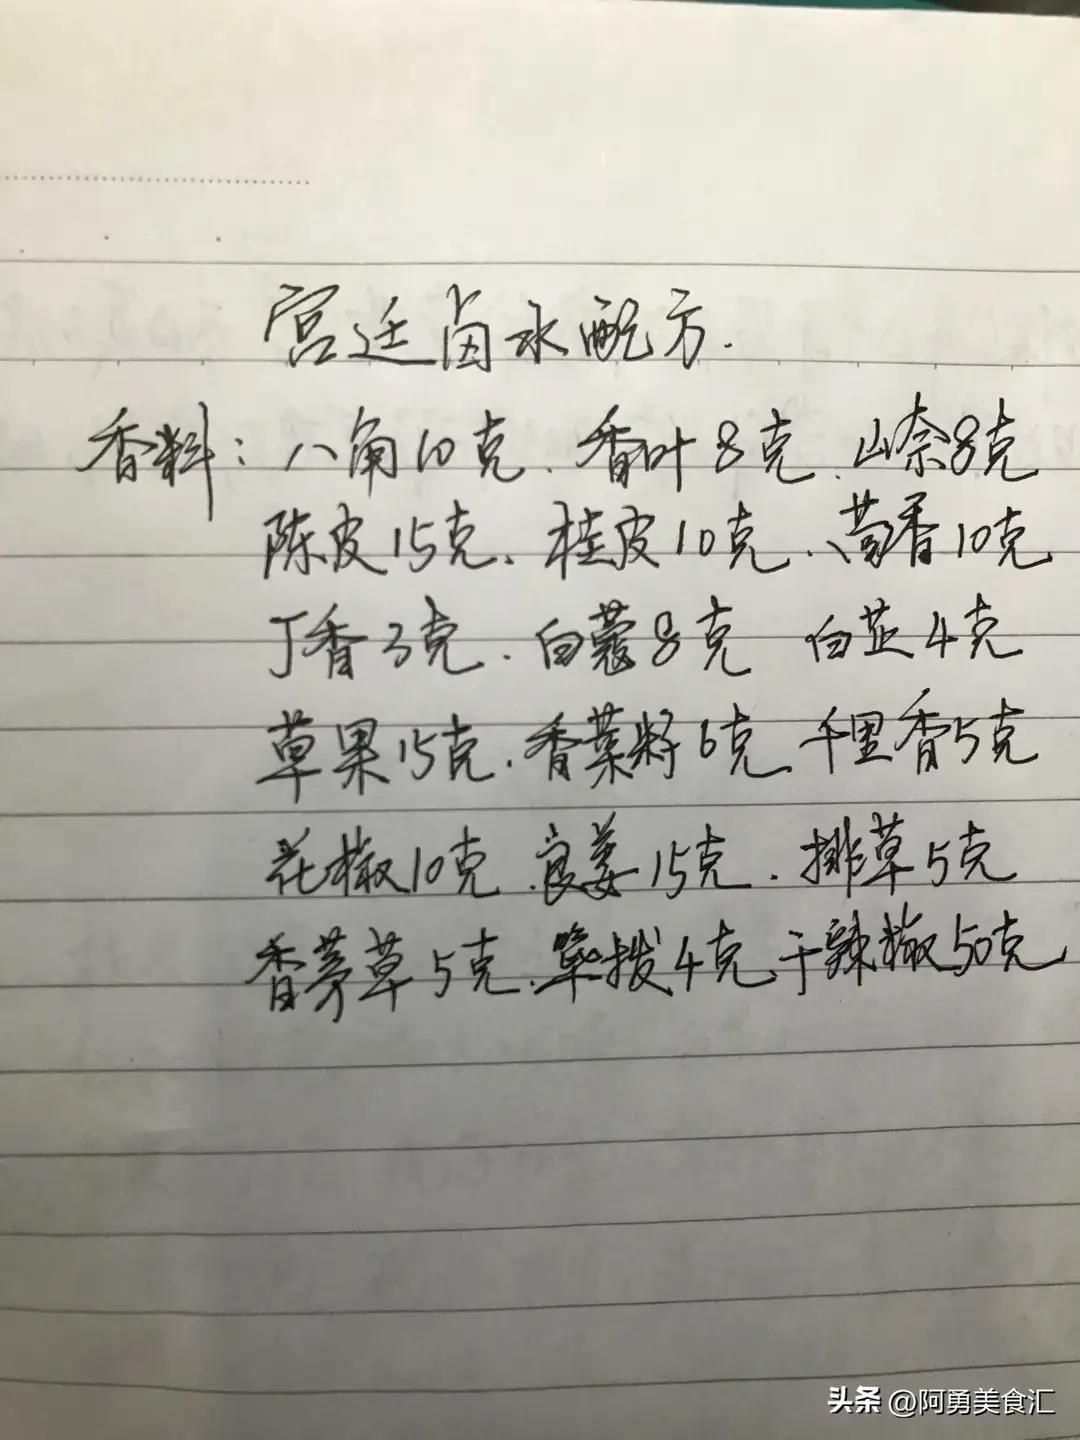 宫廷卤水配方.
香料：八角10克、香叶8克、山奈8克
陈皮15克、桂皮10克、小茴香10克
丁香3克、白蔻8克 白芷4克
草果15克、香菜籽6克、千里香5克
花椒10克、良姜15克、排草5克
香茅草5克、荜拨4克、干辣椒50克
头条 @阿勇美食汇